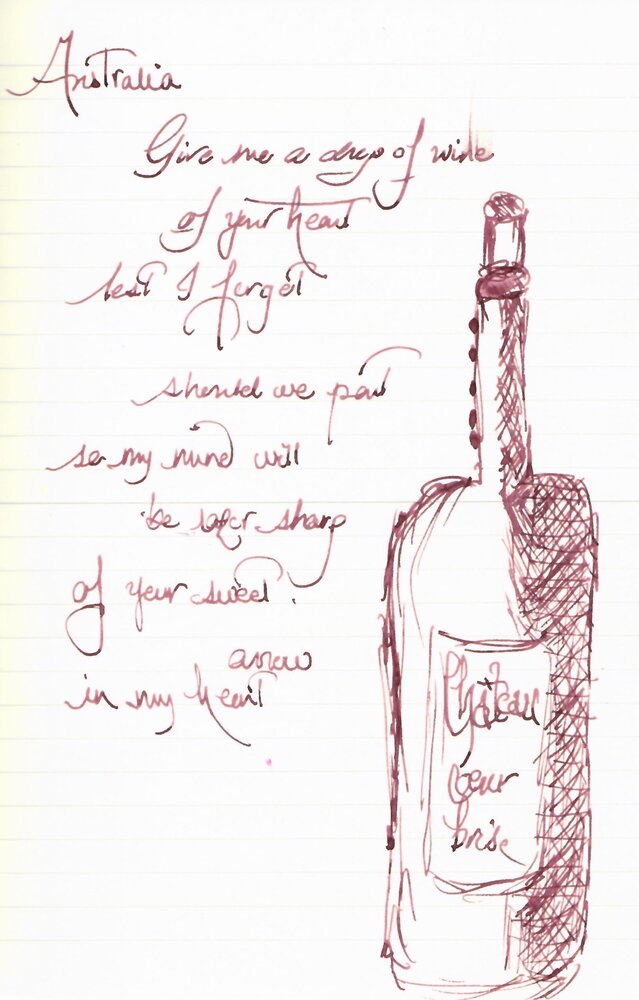 Australia
Give me a drop of wine
of your heart
lest I forget
should we part
so my mind will
be sharp
of your sweet
arrow
in my heart
Château
Coeur
brisé